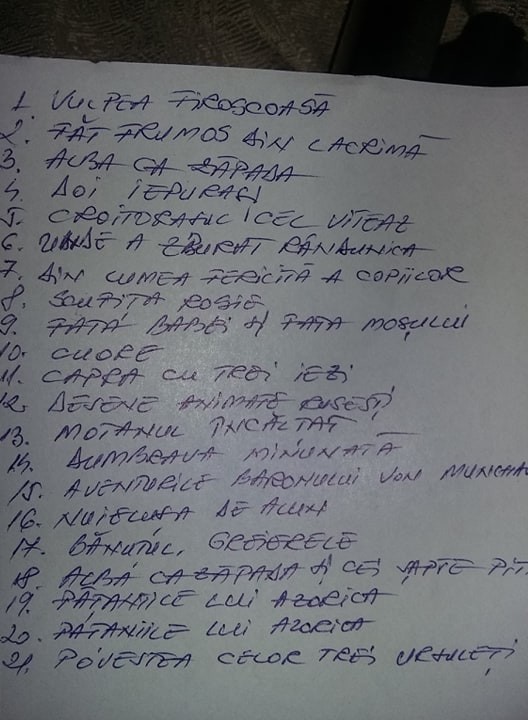 1. VULPEA FIROSCOASĂ
2. FĂT FRUMOS DIN LACRIMĂ
3. ALBA CA ZĂPADA
4. DOI IEPURAȘI
5. CROITORAȘUL CEL VITEAZ
6. UNDE A ZBURAT RÂNDUNICA
7. DIN LUMEA FERICITĂ A COPIILOR
8. SCUFIȚA ROȘIE
9. FATA BABEI ȘI FATA MOȘULUI
10. CUORE
11. CAPRA CU TREI IEZI
12. DESENE ANIMATE RUSEȘTI
13. MOTANUL ÎNCĂLȚAT
14. DUMBRAVA MINUNATĂ
15. AVENTURILE BARONULUI VON MUNCHAU
16. NUIELUȘA DE ALUN
17. BĂNUȚUL, GREIERELE
18. ALBĂ CA ZĂPADA ȘI CEI ȘAPTE PIT
19. PĂȚANIILE LUI AZORICĂ
20. PĂȚANIILE LUI AZORICĂ
21. POVESTEA CELOR TREI URSULEȚI